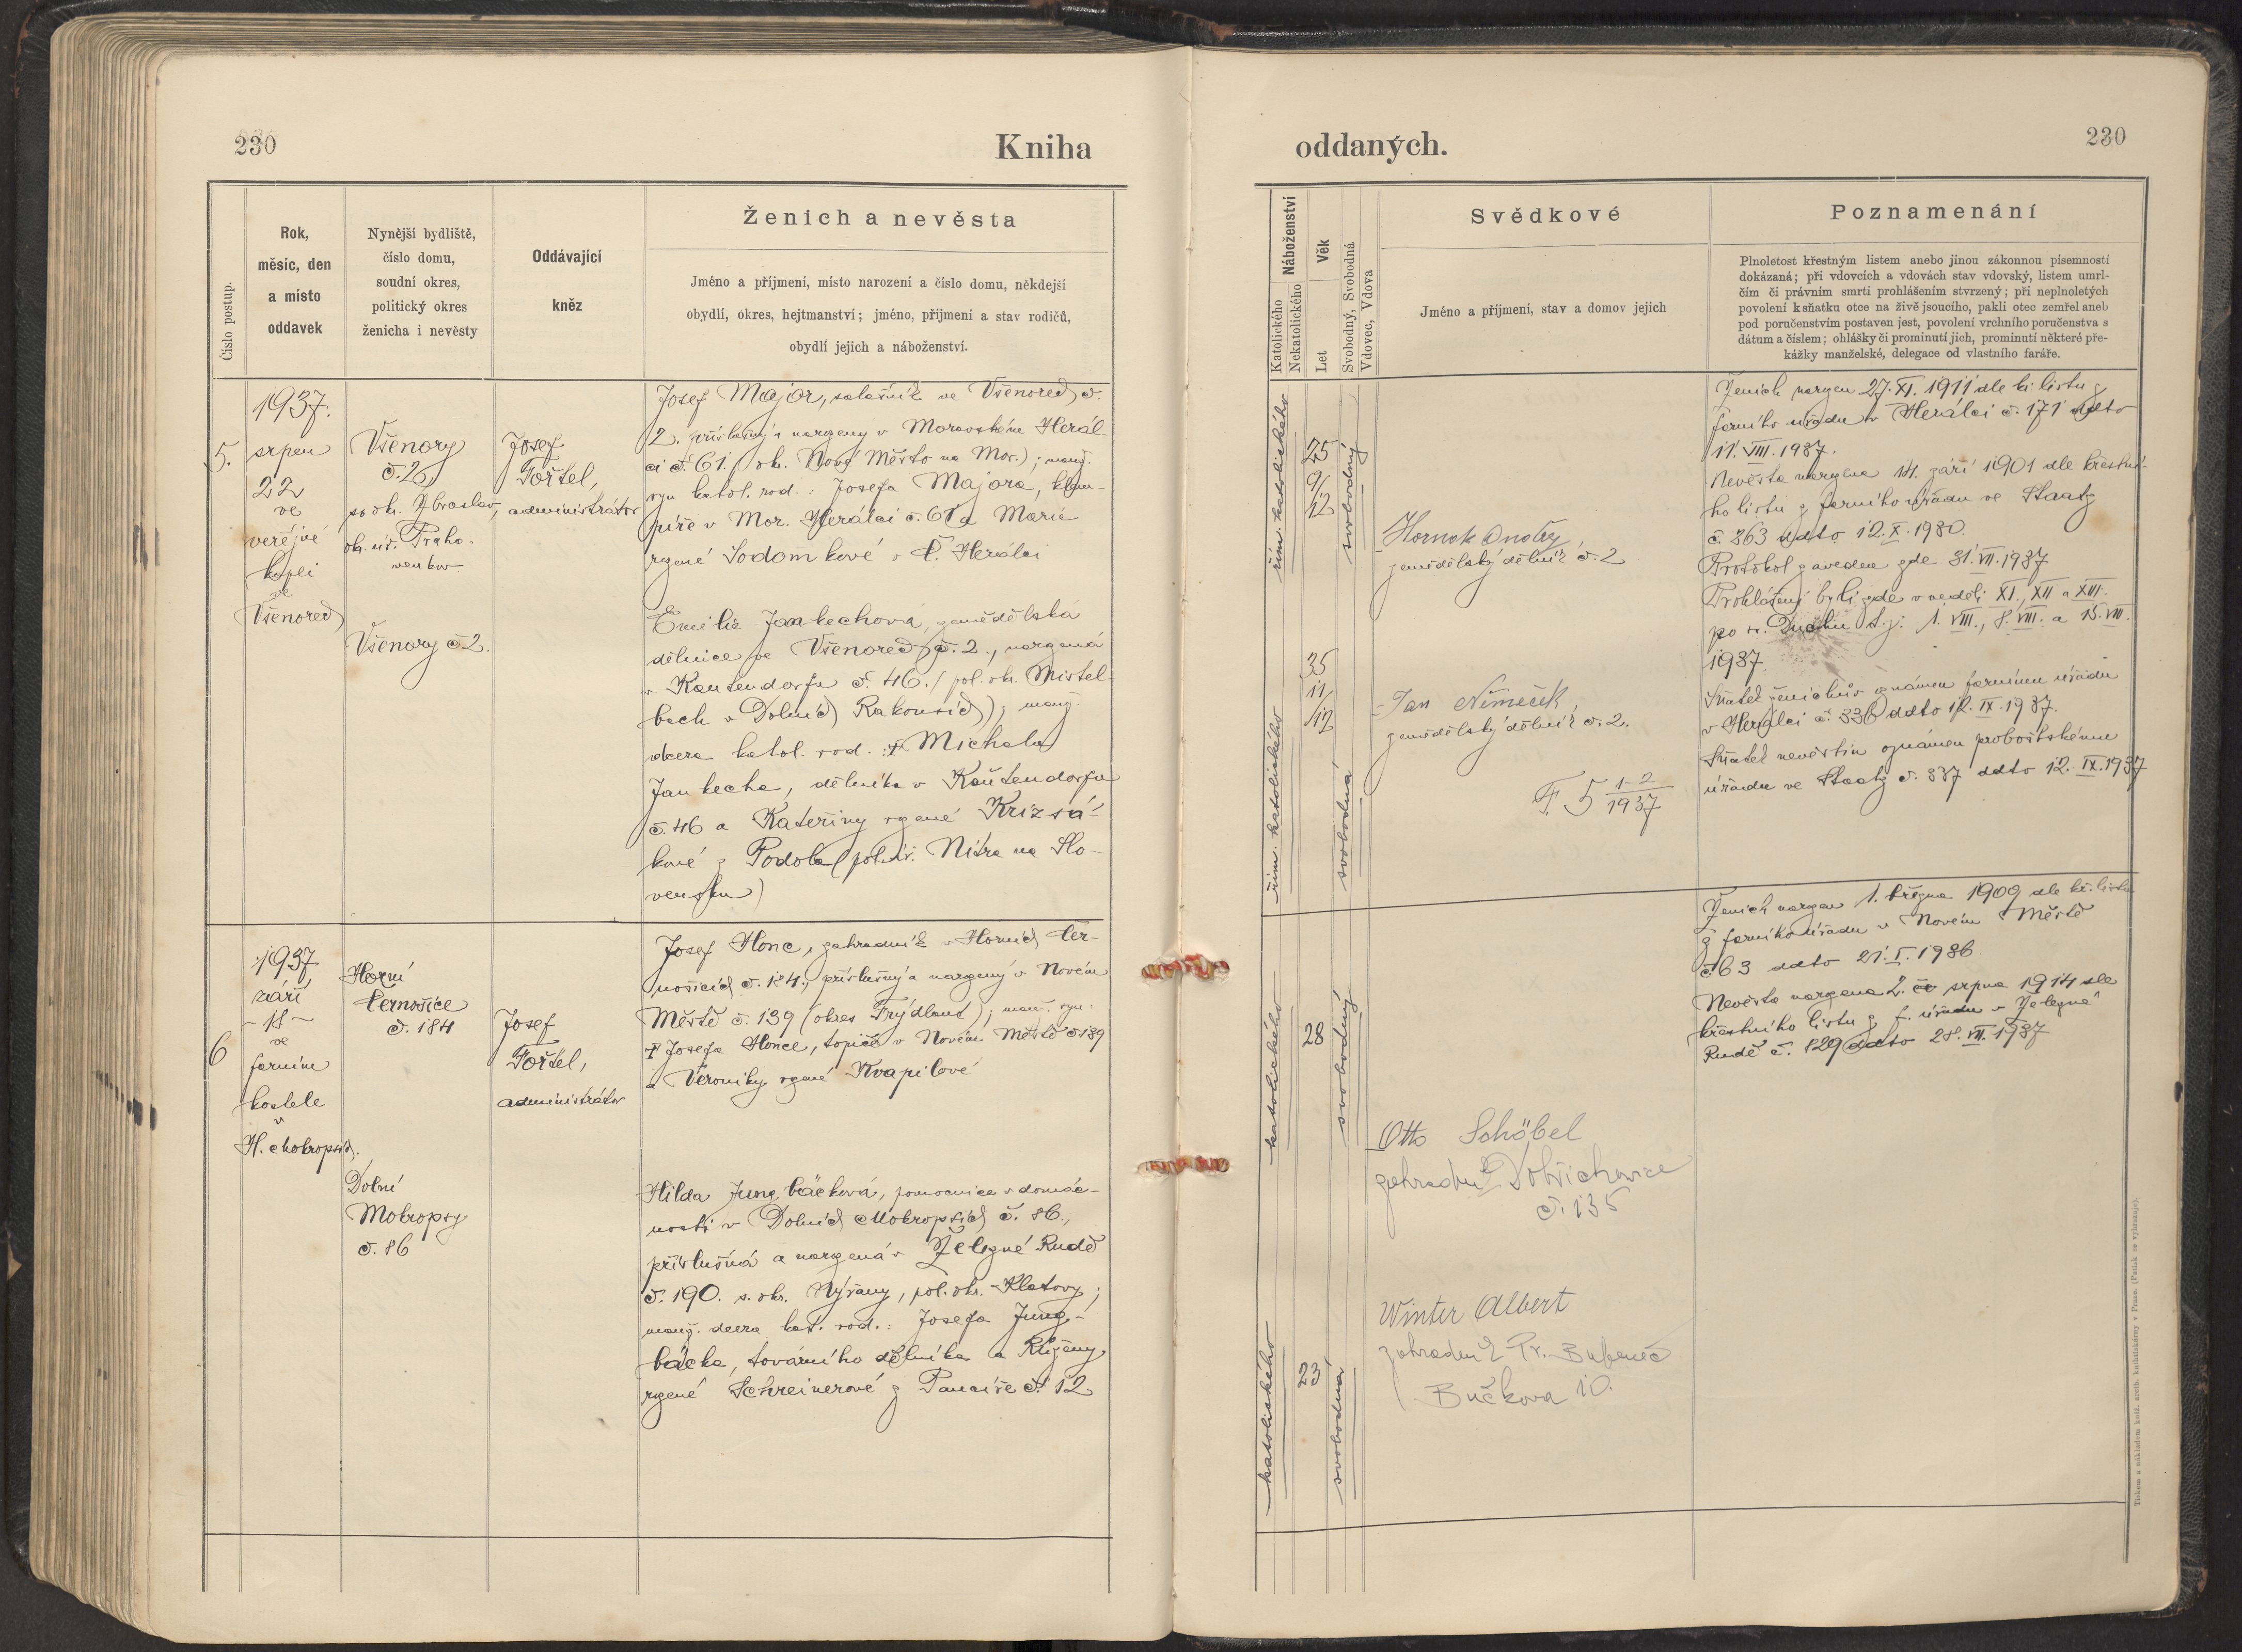 230
Kniha
oddaných.
230
Číslo postup.
Rok,
měsíc, den
a místo
oddavek
Nynější bydliště,
číslo domu,
soudní okres,
politický okres
ženicha i nevěsty
Oddávající
kněz
Ženich a nevěsta
Jméno a příjmení, místo narození a číslo domu, někdejší
obydlí, okres, hejtmanství; jméno, příjmení a stav rodičů,
obydlí jejich a náboženství.
Náboženství
Katolického
Nekatolického
Věk
Let
Svobodný, Svobodná
Vdovec, Vdova
Svědkové
Jméno a příjmení, stav a domov jejich
Poznamenání
Plnoletost křestným listem anebo jinou zákonnou písemností
dokázaná; při vdovcích a vdovách stav vdovský, listem umrl-
čím či právním smrti prohlášením stvrzený; při neplnoletých
povolení k sňatku otce na živě jsoucího, pakli otec zemřel aneb
pod poručenstvím postaven jest, povolení vrchního poručenstva s
dátum a číslem; ohlášky či prominutí jich, prominutí některé pře-
kážky manželské, delegace od vlastního faráře.
5.
1937.
srpen
22
ve
veřejné
kapli
ve
Všenorech
Všenory
č. 2,
so ok. Zbraslav,
ok. úř. Praha-
venkov
Všenory č 2.
Josef
Fořtel,
administrátor
Josef Major, salašník ve Všenorech č.
2. příslušný a narozený v Moravském Herál-
ci č. 61. (ok. Nové Město na Mor.); manž.
syn katol. rod.: Josefa Majora, klem-
píře v Mor. Herálci č. 61 a Marie
rozené Sodomkové z Č. Herálci
Emilie Jankechová, zemědělská
dělnice ve Všenorech č. 2., narozená
v Kautendorfu č. 46. (pol. ok. Mistel-
bach v Dolních Rakousích); manž.
dcera katol. rod.: † Michala
Jankecha, dělníka v Kautendorfu
č. 46 a Kateřiny rozené Krizsá-
kové z Podola (pol. úř. Nitra na Slo-
vensku)
řím. katolického
25
9/
12
svobodný
řím. katolického
35
11/
12
svobodná
Hornok Onofrej
zemědělský dělník č. 2
Jan Němeček
zemědělský dělník č. 2.
F. 5 1-2/1937
Ženich narozen 27. XI. 1911 dle kř. listu z
farního úřadu v Herálci č. 171 ddto
11. VIII. 1937.
Nevěsta narozena 14. září 1901 dle křestní-
ho listu z farního úřadu ve Staatz
č. 363 ddto 12. X. 1930.
Protokol zaveden zde 31. VII. 1937
Prohlášeni byli zde v neděli XI., XII a XIII.
po sv. Duchu t. j. 1. VIII., 8. VIII. a 15. VIII.
1937.
Sňatek ženichův oznámen farnímu úřadu
v Herálci č. 336 ddto 12. IX. 1937.
Sňatek nevěstin oznámen proboštskému
úřadu ve Staatz č. 337 ddto 12. IX. 1937
6
1937
září
- 18 -
ve
farním
kostele
v
H. Mokropsích.
Horní
Černošice
č. 184
Dolní
Mokropsy
č. 86
Josef
Fořtel,
administrátor
Josef Honc, zahradník v Horních Čer-
nošicích č. 184., příslušný a narozený v Novém
Městě č. 139 (okres Frýdlant); manž. syn:
† Josefa Honce, topiče v Novém Městě č 139
a Veroniky rozené Kvapilové
Hilda Jungbäcková, pomocnice v domác-
nosti v Dolních Mokropsích č. 86.,
příslušná a narozená v Železné Rudě
č. 190. s. okr. Nýrany, pol. okr. Klatovy;
manž. dcera kat. rod.: Josefa Jung-
bäcka, továrního dělníka a Růženy
rozené Schreinerové z Pancíře č. 12
katolického
28
svobodný
katolického
23
svobodná
Otto Schöbel
zahradník Dobřichovice
č. 135
Winter Albert
zahradník Pr. Bubeneč
Bučkova 10.
Ženich narozen 1. března 1909 dle kř. listu
z farního úřadu v Novém Městě
č. 63 ddto 21. I. 1936
Nevěsta narozena 2. srpna 1914 dle
křestního listu z f. úřadu v Železné
Rudě č. 829 ddto 28. VII. 1937
Tiskem a nákladem kníž. arcib. knihtiskárny v Praze. (Patisk se vyhrazuje).